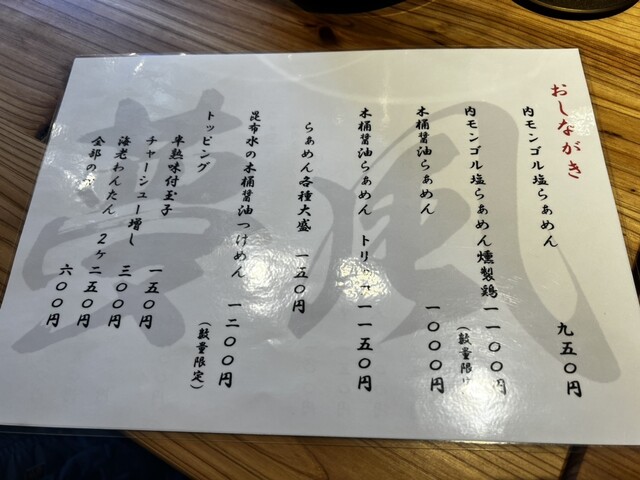 おしながき
内モンゴル塩らぁめん 九五〇円
内モンゴル塩らぁめん燻製鶏 一一〇〇円
(数量限
木桶醤油らぁめん 一〇〇〇円
木桶醤油らぁめん トリ 一一五〇円
らぁめん各種大盛 一五〇円
昆布水の木桶醤油つけめん 一二〇〇円
(数量限定)
トッピング
半熟味付玉子 一五〇円
チャーシュー増し 三〇〇円
海老わんたん 2ヶ 二五〇円
全部の 六〇〇円
夢風